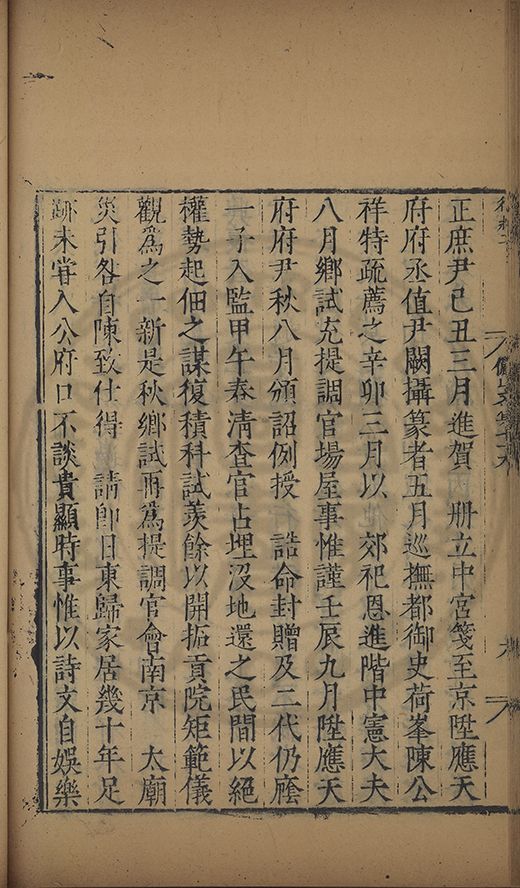 正庶尹己丑三月進賀　册立中宮箋至京陞應天
府府丞值尹闕攝篆者五月巡撫都御史荷峯陳公
祥特疏薦之辛卯三月以　郊祀恩進階中憲大夫
八月鄉試充提調官場屋事惟謹壬辰九月陞應天
府府尹秋八月頒詔例授　誥命封贈及二代仍廕
一子入監甲午春清查官占埋没地還之民間以絕
權勢起佃之謀復積科試羨餘以開拓貢院矩範儀
觀爲之一新是秋鄉試再爲提調官會南京　太廟
災引咎自陳致仕得　請卽日東歸家居幾十年足
跡未甞入公府口不談貴顯時事惟以詩文自娛樂